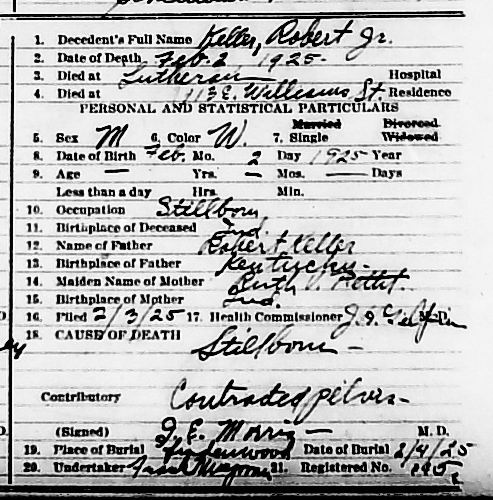 1. Decedent's Full Name Keller, Robert Jr.
2. Date of Death Feb. 2, 1925.
3. Died at Lutheran Hospital
4. Died at 113 E. Williams St. Residence
PERSONAL AND STATISTICAL PARTICULARS
5. Sex M 6. Color W. 7. Married Single Divorced Widowed
8. Date of Birth Feb. Mo. 2 Day 1925 Year
9. Age — Yrs. — Mos. — Days
Less than a day Hrs. Min.
10. Occupation Stillborn
11. Birthplace of Deceased Ind.
12. Name of Father Robert Keller
13. Birthplace of Father Kentucky
14. Maiden Name of Mother Ruth Pettit
15. Birthplace of Mother Ind.
16. Filed 2/3/25 17. Health Commissioner M. D.
18. CAUSE OF DEATH
Stillborn —
Contributory Contracted pelvis —
(Signed) J. E. Morris — M. D.
19. Place of Burial Lindenwood Date of Burial 2/4/25
20. Undertaker 21. Registered No.